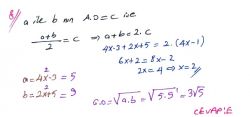 a ile b nin A.O=C ise
a+b/2 = C ⇒ a+b=2.C
4x-3+2x+5 = 2.(4x-1)
6x+2=8x-2
2x=4 ⇒ x=2
a=4x-3=5
b=2x+5=9
G.O=√a.b = √5.9 = 3√5
CEVAP:E